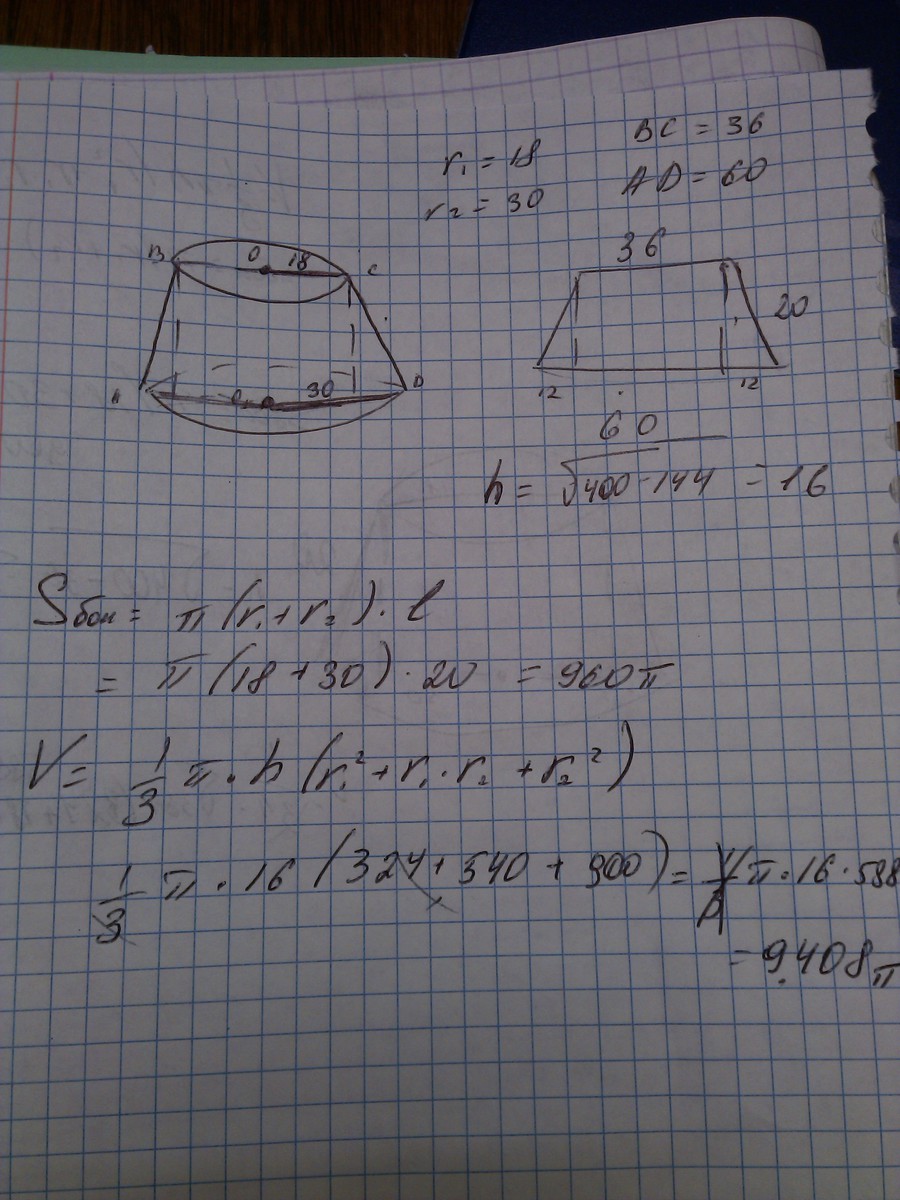 r₁ = 18
r₂ = 30
BC = 36
AD = 60
B O 18 C
A O₁ 30 D
36
20
12 12
60
h = √400 - 144 = 16
Sбок = π (r₁ + r₂) · l
= π (18 + 30) · 20 = 960π
V = 1/3 π · h (r₁² + r₁ · r₂ + r₂²)
1/3 π · 16 (324 + 540 + 900) = 1/3 π · 16 · 588
= 9408π